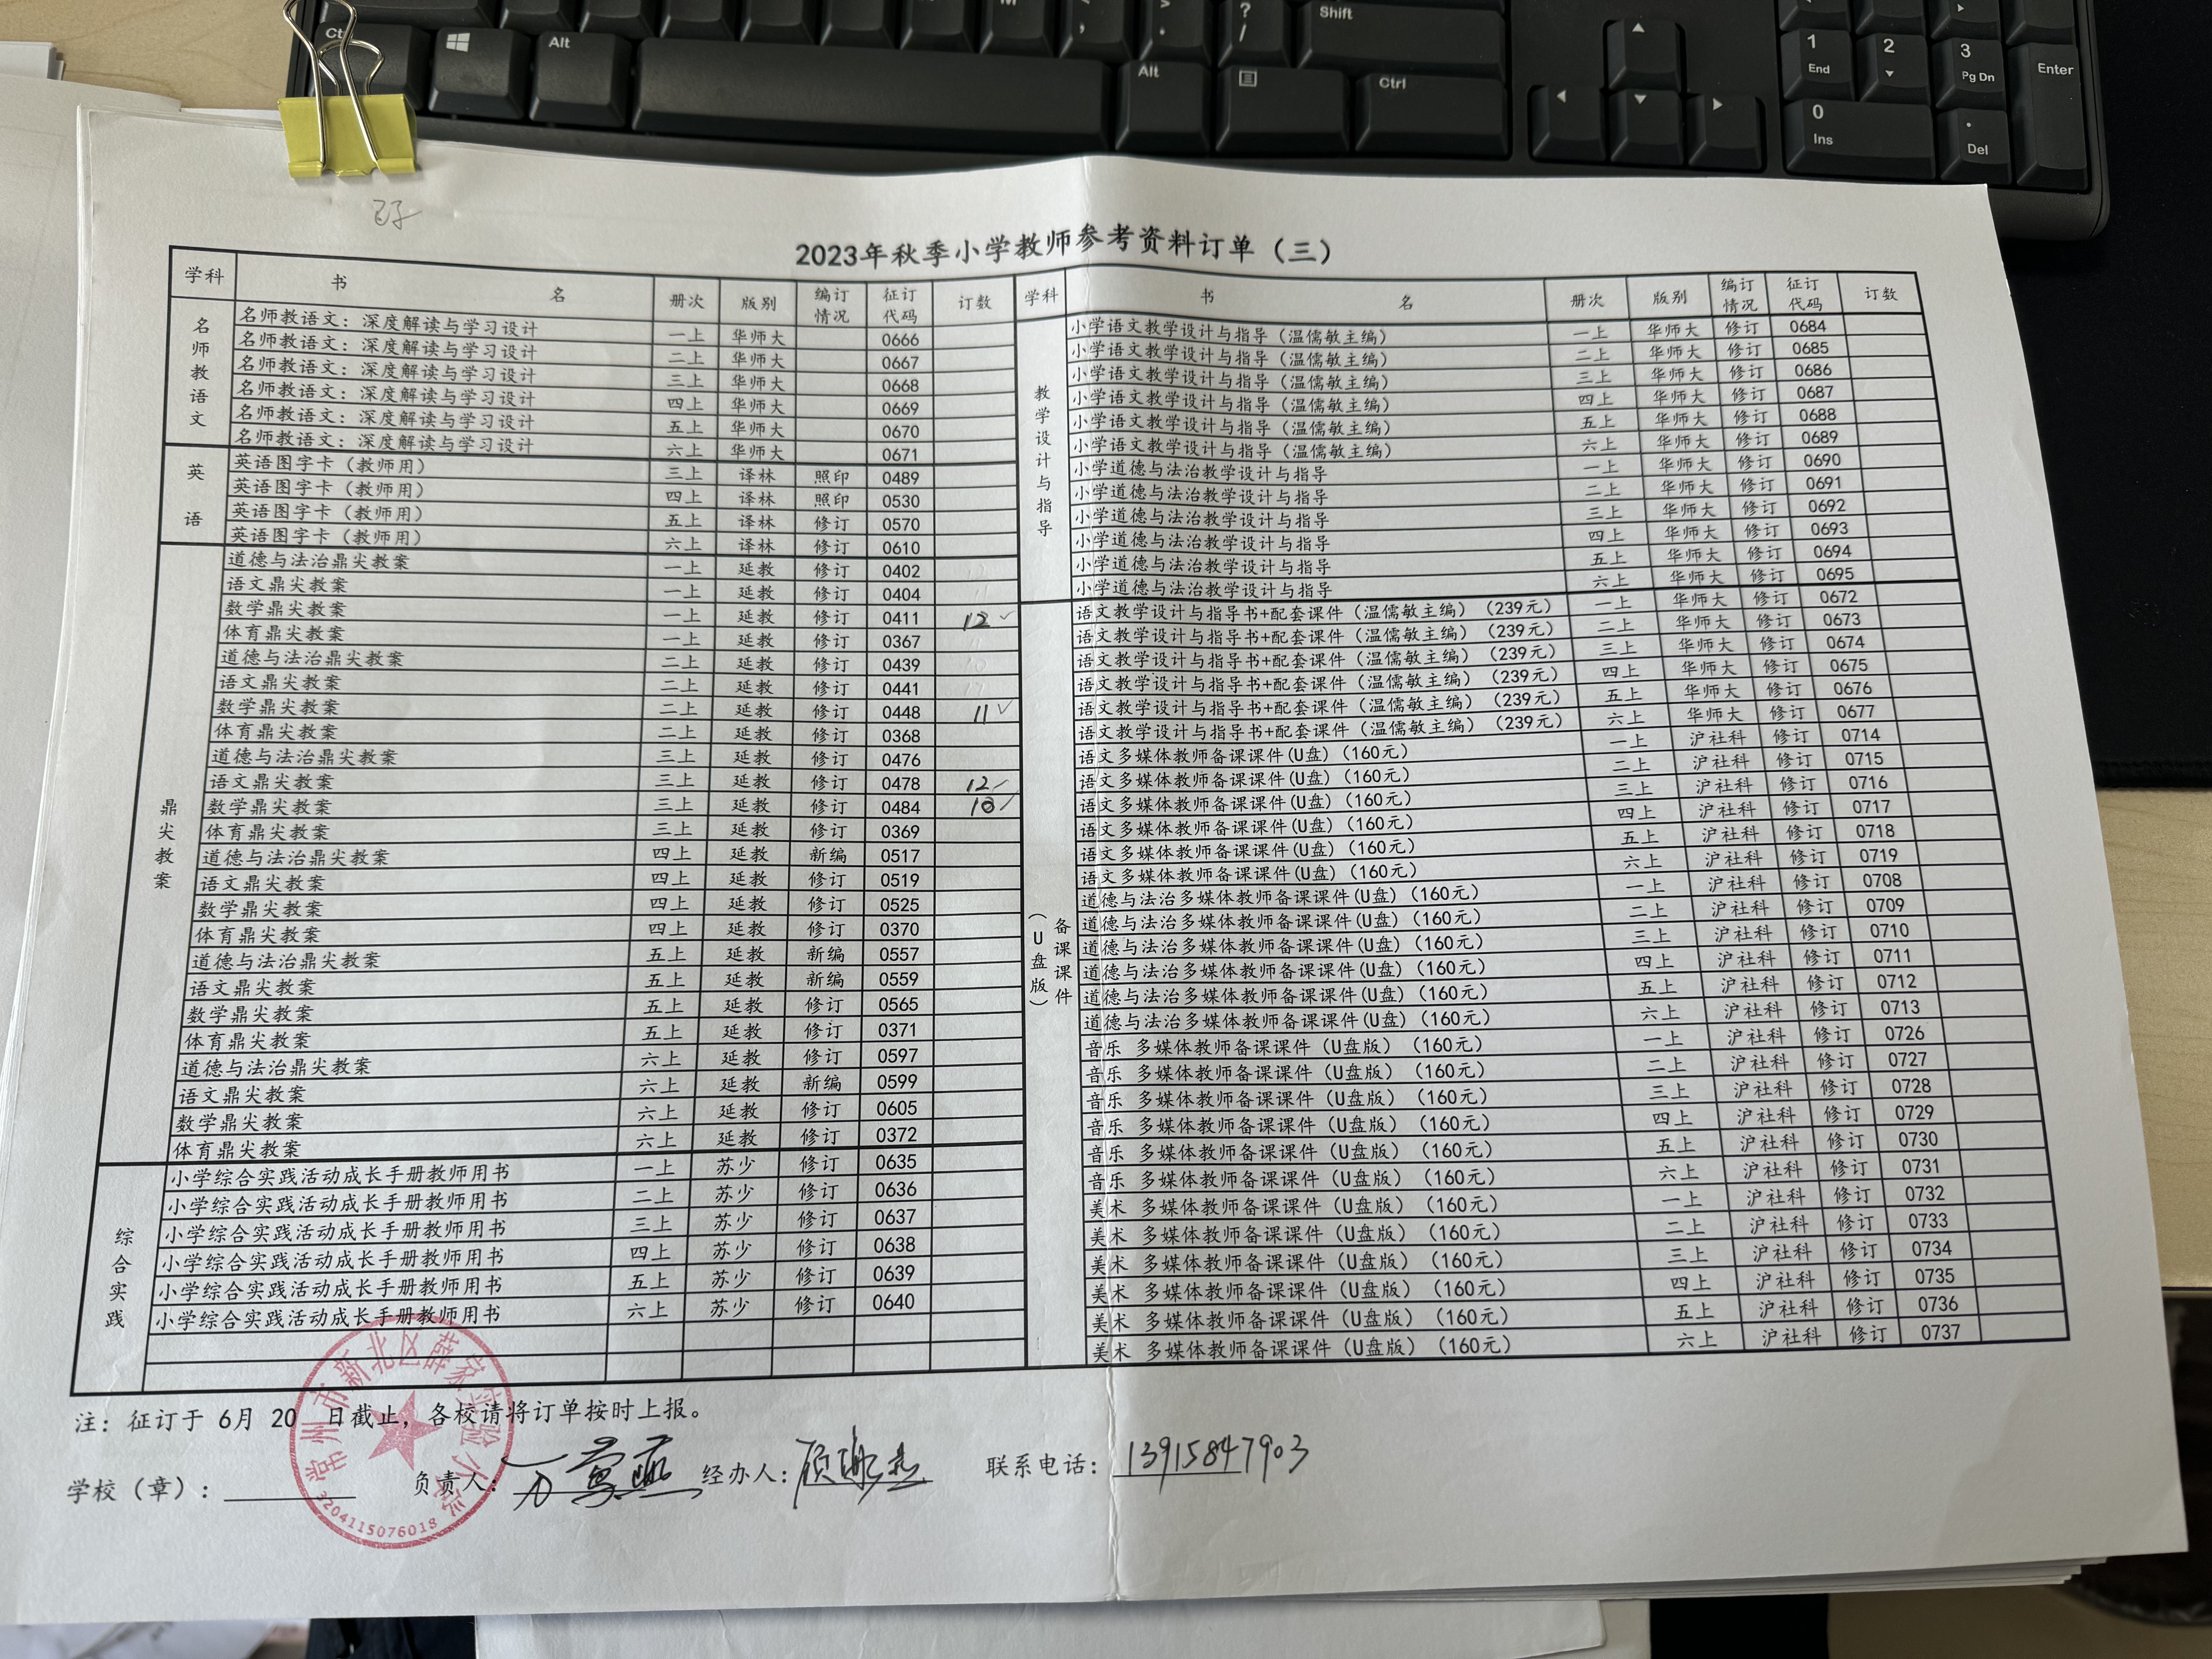 Ctrl
Alt
Alt
Ctrl
Shift
?
/
1
End
2
3
Pg Dn
Enter
0
Ins
.
Del
2023年秋季小学教师参考资料订单（三）
学科 书 名 册次 版别 编订情况 征订代码 订数
名师教语文
名师教语文：深度解读与学习设计 一上 华师大 0666
名师教语文：深度解读与学习设计 二上 华师大 0667
名师教语文：深度解读与学习设计 三上 华师大 0668
名师教语文：深度解读与学习设计 四上 华师大 0669
名师教语文：深度解读与学习设计 五上 华师大 0670
名师教语文：深度解读与学习设计 六上 华师大 0671
英语
英语图字卡（教师用） 三上 译林 照印 0489
英语图字卡（教师用） 四上 译林 照印 0530
英语图字卡（教师用） 五上 译林 修订 0570
英语图字卡（教师用） 六上 译林 修订 0610
鼎尖教案
道德与法治鼎尖教案 一上 延教 修订 0402
语文鼎尖教案 一上 延教 修订 0404
数学鼎尖教案 一上 延教 修订 0411 12
体育鼎尖教案 一上 延教 修订 0367
道德与法治鼎尖教案 二上 延教 修订 0439
语文鼎尖教案 二上 延教 修订 0441
数学鼎尖教案 二上 延教 修订 0448 11
体育鼎尖教案 二上 延教 修订 0368
道德与法治鼎尖教案 三上 延教 修订 0476
语文鼎尖教案 三上 延教 修订 0478 12
数学鼎尖教案 三上 延教 修订 0484 10
体育鼎尖教案 三上 延教 修订 0369
道德与法治鼎尖教案 四上 延教 新编 0517
语文鼎尖教案 四上 延教 修订 0519
数学鼎尖教案 四上 延教 修订 0525
体育鼎尖教案 四上 延教 修订 0370
道德与法治鼎尖教案 五上 延教 新编 0557
语文鼎尖教案 五上 延教 新编 0559
数学鼎尖教案 五上 延教 修订 0565
体育鼎尖教案 五上 延教 修订 0371
道德与法治鼎尖教案 六上 延教 修订 0597
语文鼎尖教案 六上 延教 新编 0599
数学鼎尖教案 六上 延教 修订 0605
体育鼎尖教案 六上 延教 修订 0372
综合实践
小学综合实践活动成长手册教师用书 一上 苏少 修订 0635
小学综合实践活动成长手册教师用书 二上 苏少 修订 0636
小学综合实践活动成长手册教师用书 三上 苏少 修订 0637
小学综合实践活动成长手册教师用书 四上 苏少 修订 0638
小学综合实践活动成长手册教师用书 五上 苏少 修订 0639
小学综合实践活动成长手册教师用书 六上 苏少 修订 0640
学科 书 名 册次 版别 编订情况 征订代码 订数
教学设计与指导
小学语文教学设计与指导（温儒敏主编） 一上 华师大 修订 0684
小学语文教学设计与指导（温儒敏主编） 二上 华师大 修订 0685
小学语文教学设计与指导（温儒敏主编） 三上 华师大 修订 0686
小学语文教学设计与指导（温儒敏主编） 四上 华师大 修订 0687
小学语文教学设计与指导（温儒敏主编） 五上 华师大 修订 0688
小学语文教学设计与指导（温儒敏主编） 六上 华师大 修订 0689
小学道德与法治教学设计与指导 一上 华师大 修订 0690
小学道德与法治教学设计与指导 二上 华师大 修订 0691
小学道德与法治教学设计与指导 三上 华师大 修订 0692
小学道德与法治教学设计与指导 四上 华师大 修订 0693
小学道德与法治教学设计与指导 五上 华师大 修订 0694
小学道德与法治教学设计与指导 六上 华师大 修订 0695
备课课件（U盘版）
语文教学设计与指导书+配套课件（温儒敏主编）（239元） 一上 华师大 修订 0672
语文教学设计与指导书+配套课件（温儒敏主编）（239元） 二上 华师大 修订 0673
语文教学设计与指导书+配套课件（温儒敏主编）（239元） 三上 华师大 修订 0674
语文教学设计与指导书+配套课件（温儒敏主编）（239元） 四上 华师大 修订 0675
语文教学设计与指导书+配套课件（温儒敏主编）（239元） 五上 华师大 修订 0676
语文教学设计与指导书+配套课件（温儒敏主编）（239元） 六上 华师大 修订 0677
语文多媒体教师备课课件(U盘)（160元） 一上 沪社科 修订 0714
语文多媒体教师备课课件(U盘)（160元） 二上 沪社科 修订 0715
语文多媒体教师备课课件(U盘)（160元） 三上 沪社科 修订 0716
语文多媒体教师备课课件(U盘)（160元） 四上 沪社科 修订 0717
语文多媒体教师备课课件(U盘)（160元） 五上 沪社科 修订 0718
语文多媒体教师备课课件(U盘)（160元） 六上 沪社科 修订 0719
道德与法治多媒体教师备课课件(U盘)（160元） 一上 沪社科 修订 0708
道德与法治多媒体教师备课课件(U盘)（160元） 二上 沪社科 修订 0709
道德与法治多媒体教师备课课件(U盘)（160元） 三上 沪社科 修订 0710
道德与法治多媒体教师备课课件(U盘)（160元） 四上 沪社科 修订 0711
道德与法治多媒体教师备课课件(U盘)（160元） 五上 沪社科 修订 0712
道德与法治多媒体教师备课课件(U盘)（160元） 六上 沪社科 修订 0713
音乐 多媒体教师备课课件（U盘版）（160元） 一上 沪社科 修订 0726
音乐 多媒体教师备课课件（U盘版）（160元） 二上 沪社科 修订 0727
音乐 多媒体教师备课课件（U盘版）（160元） 三上 沪社科 修订 0728
音乐 多媒体教师备课课件（U盘版）（160元） 四上 沪社科 修订 0729
音乐 多媒体教师备课课件（U盘版）（160元） 五上 沪社科 修订 0730
音乐 多媒体教师备课课件（U盘版）（160元） 六上 沪社科 修订 0731
美术 多媒体教师备课课件（U盘版）（160元） 一上 沪社科 修订 0732
美术 多媒体教师备课课件（U盘版）（160元） 二上 沪社科 修订 0733
美术 多媒体教师备课课件（U盘版）（160元） 三上 沪社科 修订 0734
美术 多媒体教师备课课件（U盘版）（160元） 四上 沪社科 修订 0735
美术 多媒体教师备课课件（U盘版）（160元） 五上 沪社科 修订 0736
美术 多媒体教师备课课件（U盘版）（160元） 六上 沪社科 修订 0737
注：征订于 6月 20 日截止，各校请将订单按时上报。
学校（章）： 负责人： 经办人： 联系电话：13915847903
常州市新北区薛家实验小学
3204115076018